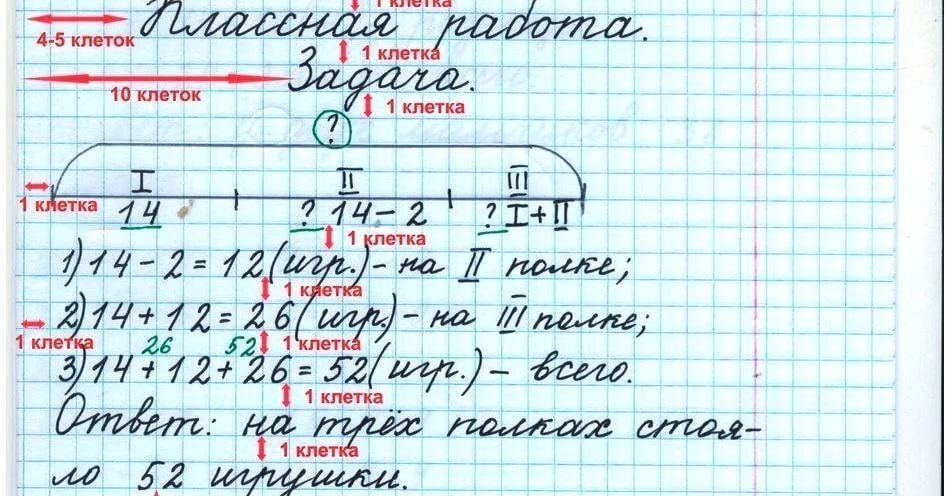 1 клетка
4-5 клеток Классная работа.
1 клетка
10 клеток Задача.
1 клетка
?
I II III
1 клетка 14 ? 14 - 2 ? I + II
1 клетка
1) 14 - 2 = 12 (игр.) - на II полке;
1 клетка
2) 14 + 12 = 26 (игр.) - на III полке;
1 клетка 26 52 1 клетка
3) 14 + 12 + 26 = 52 (игр.) - всего.
1 клетка
Ответ: на трёх полках стоя-
1 клетка
ло 52 игрушки.